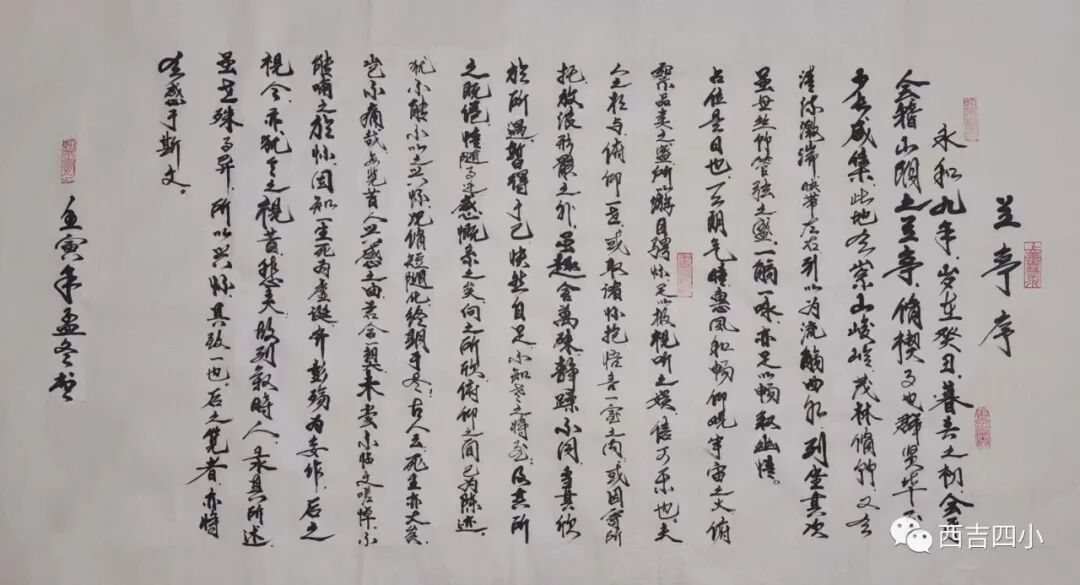 兰亭序
永和九年岁在癸丑暮春之初会于
会稽山阴之兰亭脩稧事也群贤毕至
少长咸集此地有崇山峻岭茂林脩竹又有
清流激湍映带左右引以为流觞曲水列坐其次
虽无丝竹管弦之盛一觞一咏亦足以畅叙幽情
是日也天朗气清惠风和畅仰观宇宙之大俯
察品类之盛所以游目骋怀足以极视听之娱信可乐也夫
人之相与俯仰一世或取诸怀抱悟言一室之内或因寄所
托放浪形骸之外虽趣舍万殊静躁不同当其欣
於所遇暂得于己快然自足不知老之将至及其所
之既倦情随事迁感慨系之矣向之所欣俯仰之间已为陈迹
犹不能不以之兴怀况脩短随化终期于尽古人云死生亦大矣
岂不痛哉每览昔人兴感之由若合一契未尝不临文嗟悼不
能喻之於怀固知一死生为虚诞齐彭殇为妄作后之
视今亦犹今之视昔悲夫故列叙时人录其所述
虽世殊事异所以兴怀其致一也后之览者亦将
有感于斯文
壬寅年孟冬
西吉四小